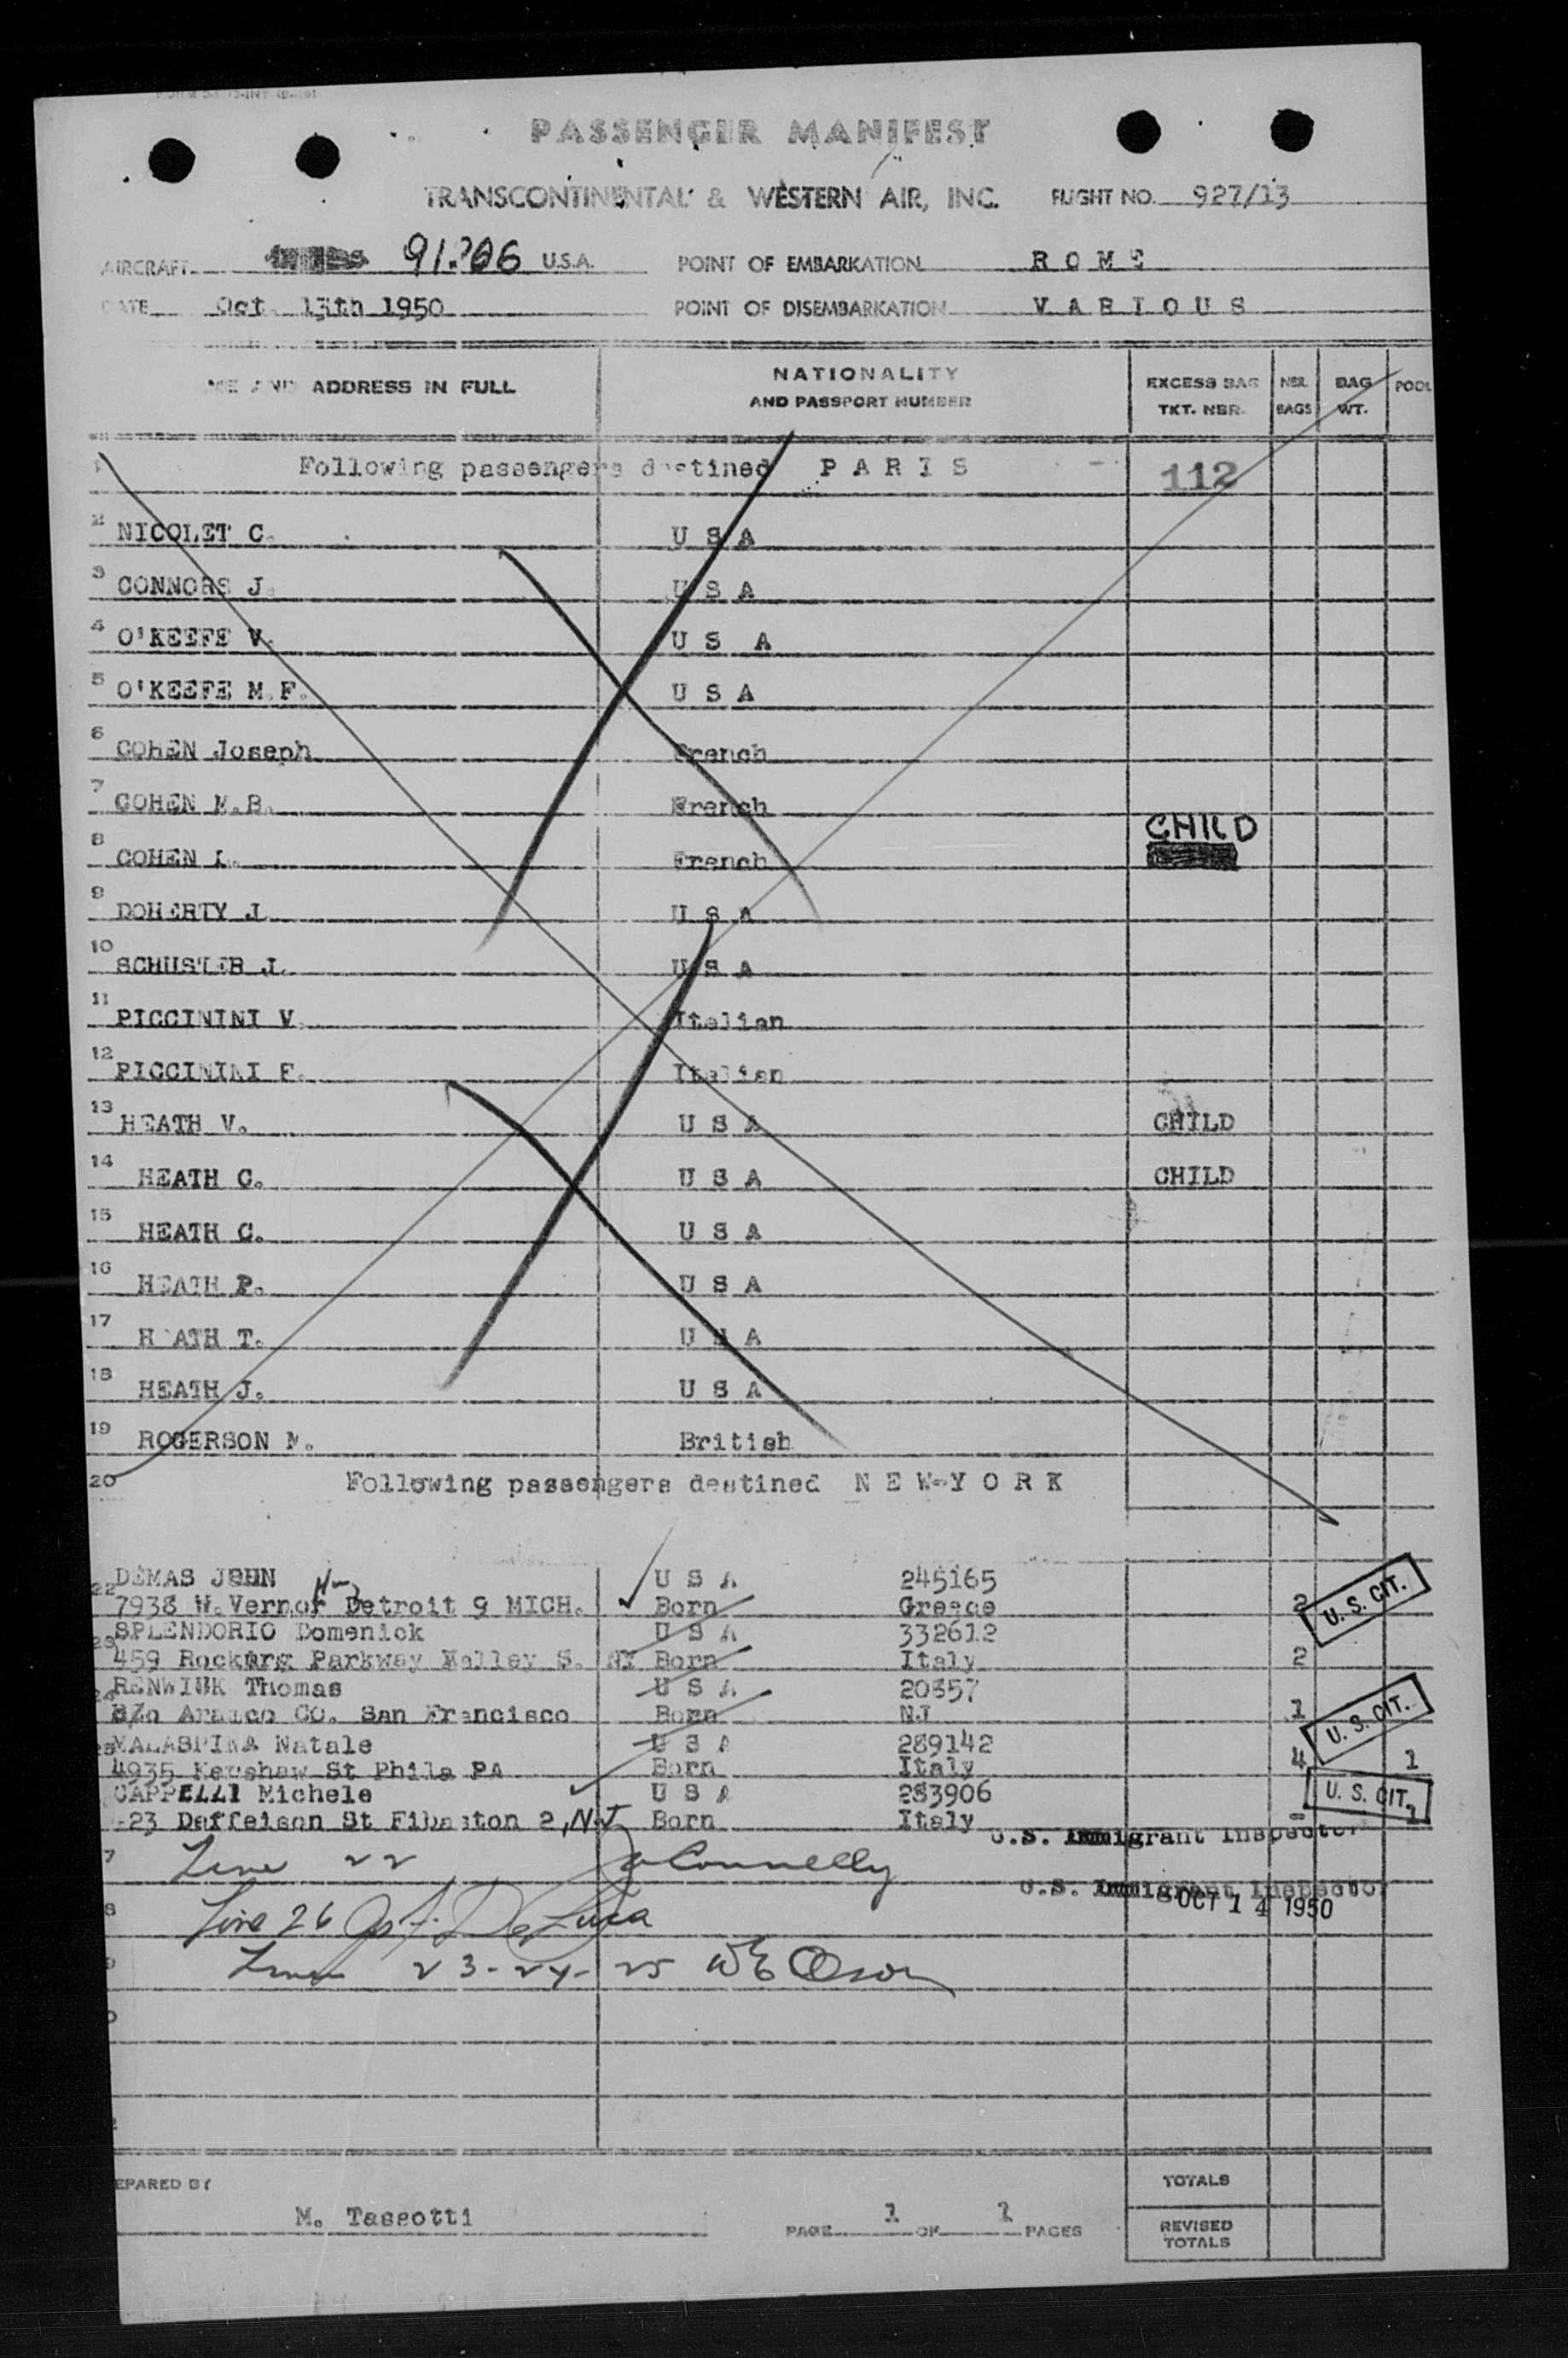 PASSENGER MANIFEST
TRANSCONTINENTAL & WESTERN AIR, INC. FLIGHT NO. 927/13
AIRCRAFT U.S.A. POINT OF EMBARKATION R O M E
DATE Oct. 13th 1950 POINT OF DISEMBARKATION V A R I O U S
AND ADDRESS IN FULL NATIONALITY AND PASSPORT NUMBER EXCESS BAG TKT. NBR. NBR. BAGS BAG WT. POOL
1 Following passengers destined P A R I S 112
2 NICOLET C. U S A
3 CONNORS J. U S A
4 O'KEEFE V. U S A
5 O'KEEFE M.F. U S A
6 COHEN Joseph French
7 COHEN M.B. French
CHILD
8 COHEN I. French
9 DOHERTY J. U S A
10 SCHUSTER J. U S A
11 PICCININI V. Italian
12 PICCININI F. Italian
13 HEATH V. U S A CHILD
14 HEATH C. U S A CHILD
15 HEATH C. U S A
16 HEATH P. U S A
17 H ATH T. U S A
18 HEATH J. U S A
19 ROGERSON M. British
20 Following passengers destined N E W-Y O R K
DEMAS JOHN U S A 245165
22 7938 W.Vernor Detroit 9 MICH. Born Greece 2 U. S. CIT.
SPLENDORIO Domenick U S A 332612
23 459 Parkway Valley S. NY Born Italy 2
RENWICK Thomas U S A 20857
Aramco CO. San Francisco Born NJ 1 U. S. CIT.
25 MALASPINA Natale U S A 289142
4935 Kershaw St Phila PA Born Italy 4 1
CAPPELLI Michele U S A 283906 U. S. CIT.
23 St 2, N.J. Born Italy - 1
U.S. Immigrant Inspector
7 Line 22 Connelly
U.S. Immigrant Inspector
OCT 14 1950
8 Line 26 De Luca
Lines 23-24-25 W E Olson
EPARED BY
M. Tassotti
PAGE 1 OF 1 PAGES
TOTALS
REVISED TOTALS